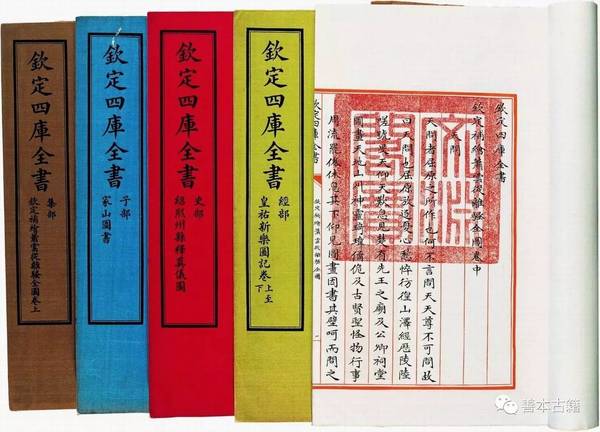 欽定四庫全書
欽定補繪蕭雲從離騷全圖卷中
天問
天問者屈原之所作也何不言問天天尊不可問故
曰天問也屈原放逐憂心愁悴彷徨山澤經歷陵陸
嗟號旻天仰天歎息見楚有先王之廟及公卿祠堂
圖畫天地山川神靈琦瑋僑佹及古賢聖怪物行事
周流罷倦休息其下仰見圖畫因書其壁呵而問之
欽定四庫全書
欽定補繪蕭雲從離騷全圖
二
文淵閣寶
欽定四庫全書
經部
皇祐新樂圖記卷上至下
欽定四庫全書
史部
紹熙州縣釋奠儀圖
欽定四庫全書
子部
家山圖書
欽定四庫全書
集部
欽定補繪蕭雲從離騷全圖卷上
善本古籍